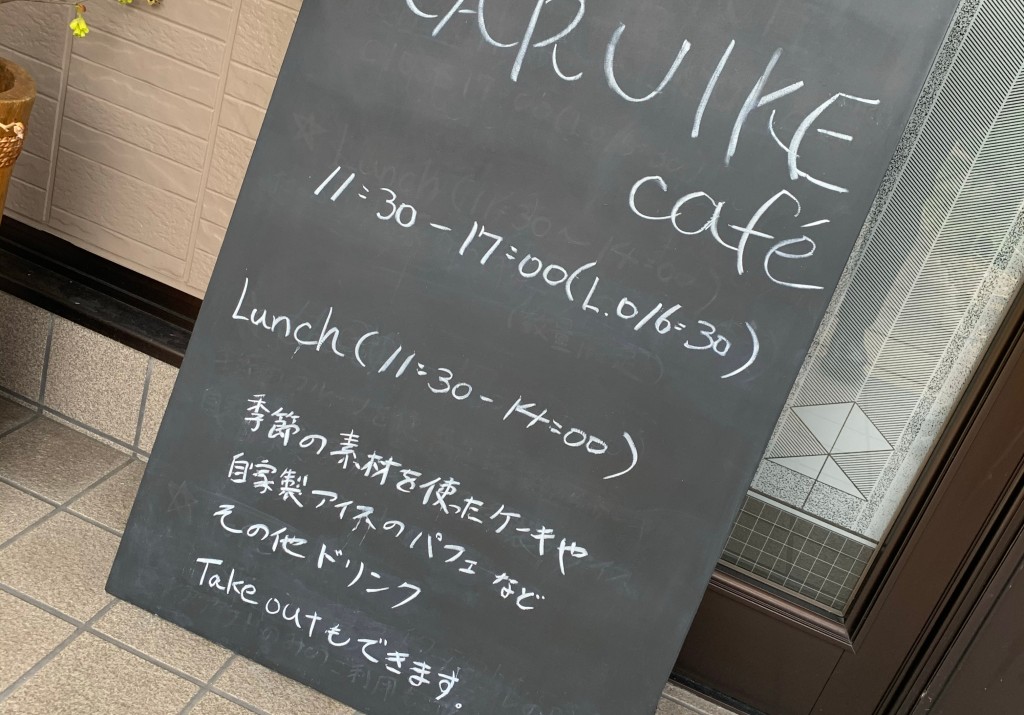 CARUIKE
café
11:30-17:00(L.O16:30)
Lunch(11:30-14:00)
季節の素材を使ったケーキや
自家製アイスのパフェなど
その他ドリンク
Take outもできます。